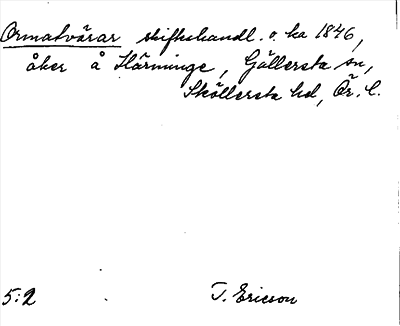 Ormatvärar skifteshandl. o. ka 1846,
åker å Härminge, Gällersta sn,
Sköllersta hd, Ör. l.
5:2 T. Ericson